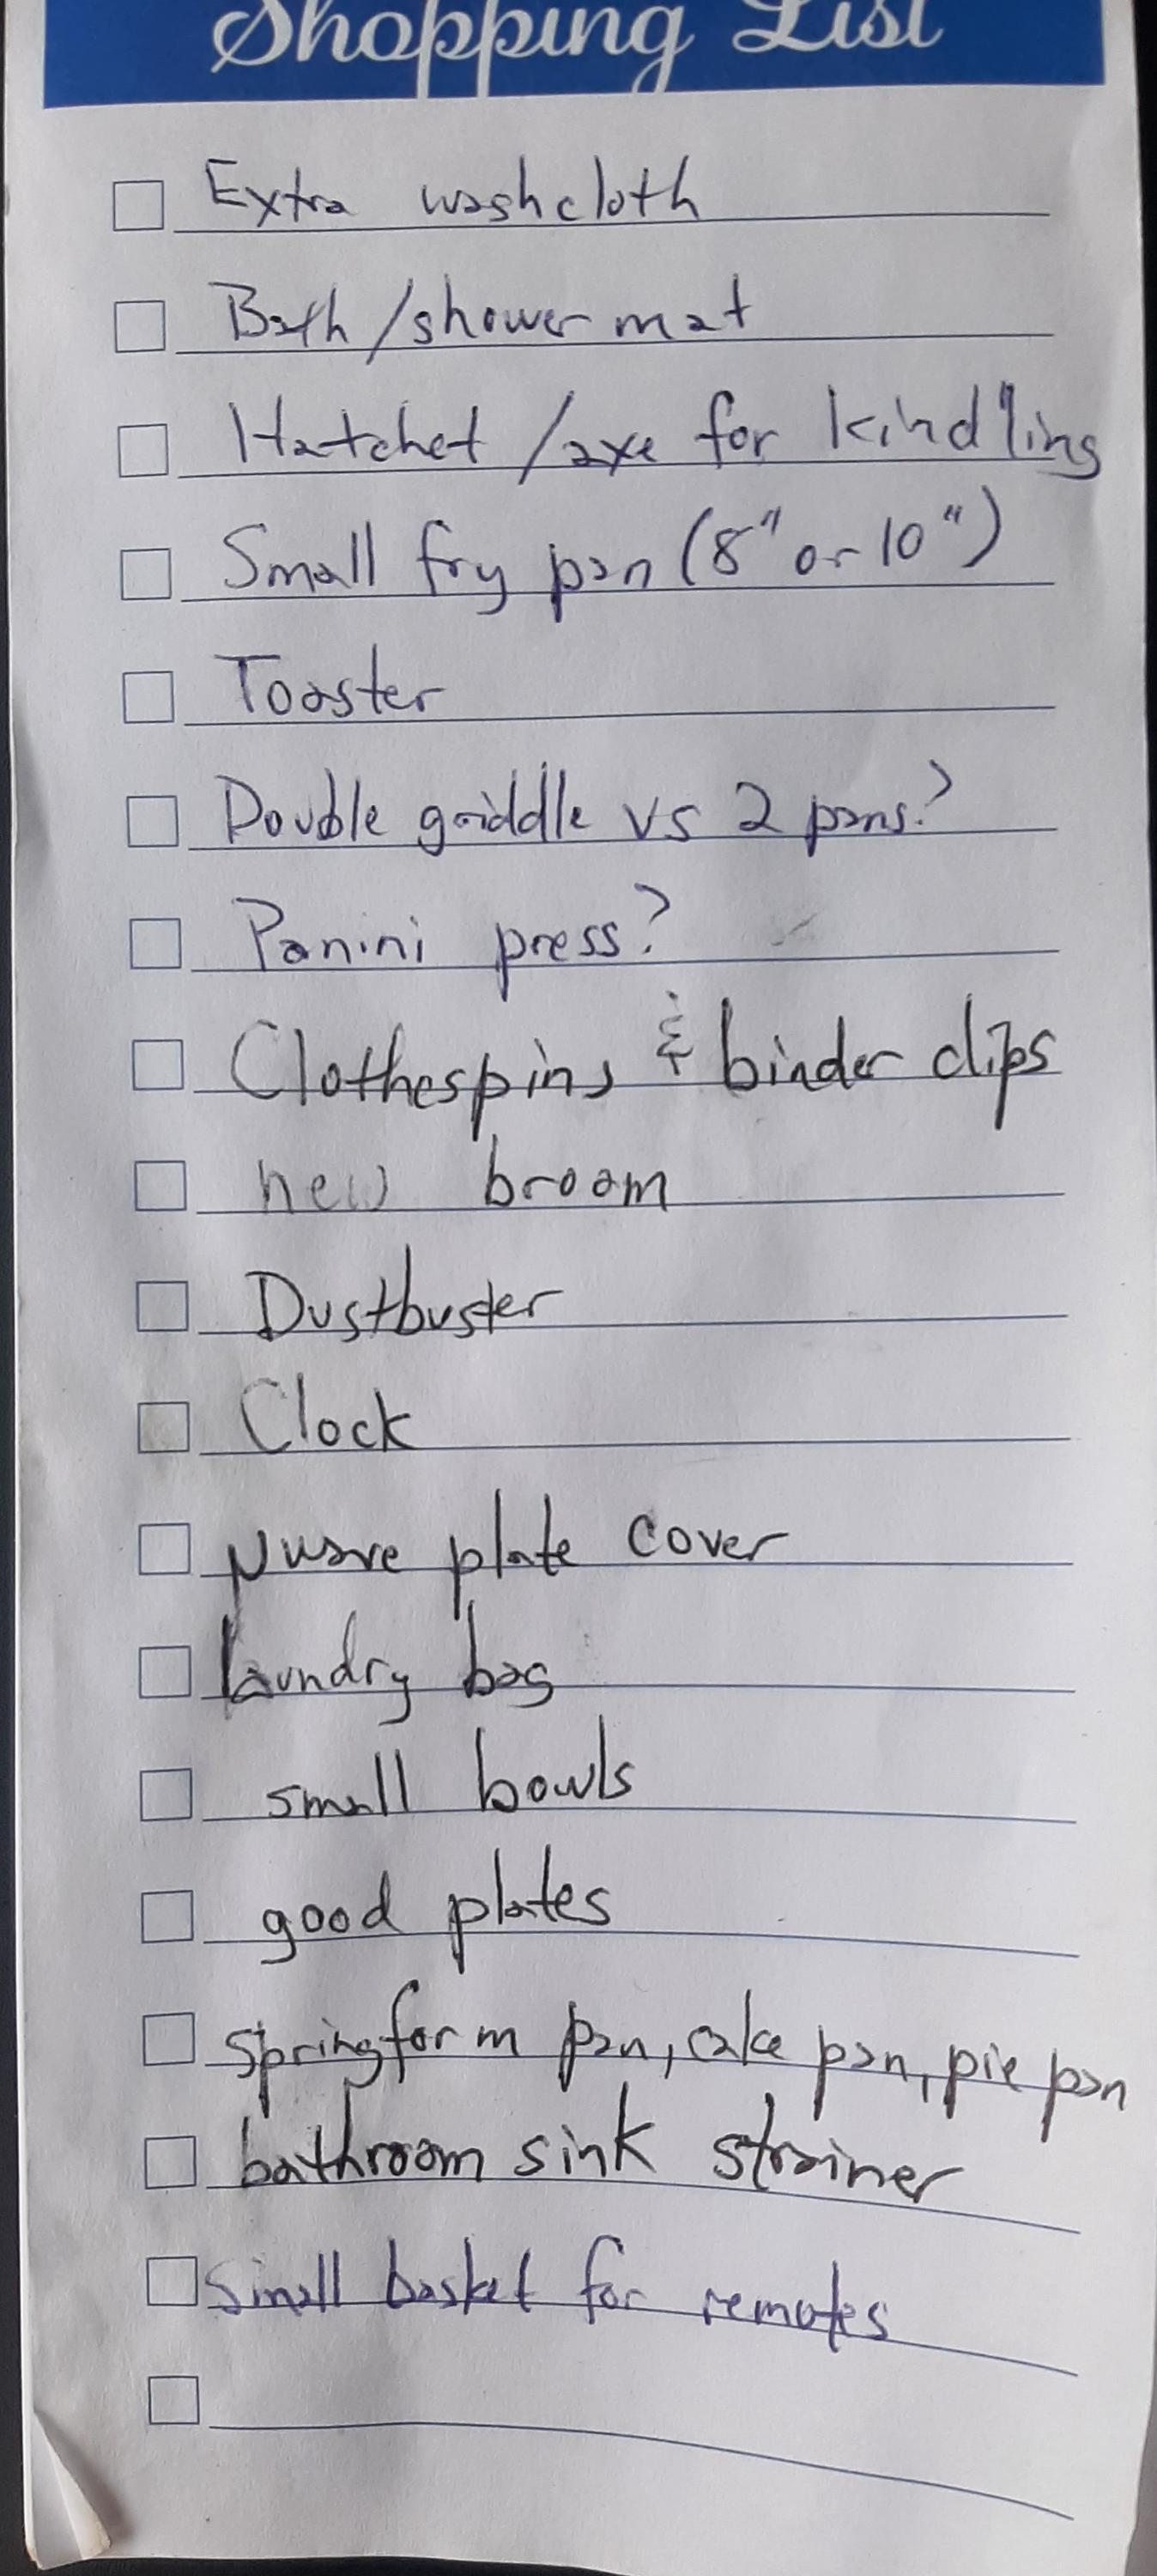 Shopping List
Extra washcloth
Bath/shower mat
Hatchet/axe for kindling
Small fry pan (8" or 10")
Toaster
Double griddle vs 2 pans?
Panini press?
Clothespins & binder clips
new broom
Dustbuster
Clock
μwave plate cover
laundry bag
small bowls
good plates
springform pan, cake pan, pie pan
bathroom sink strainer
small basket for remotes